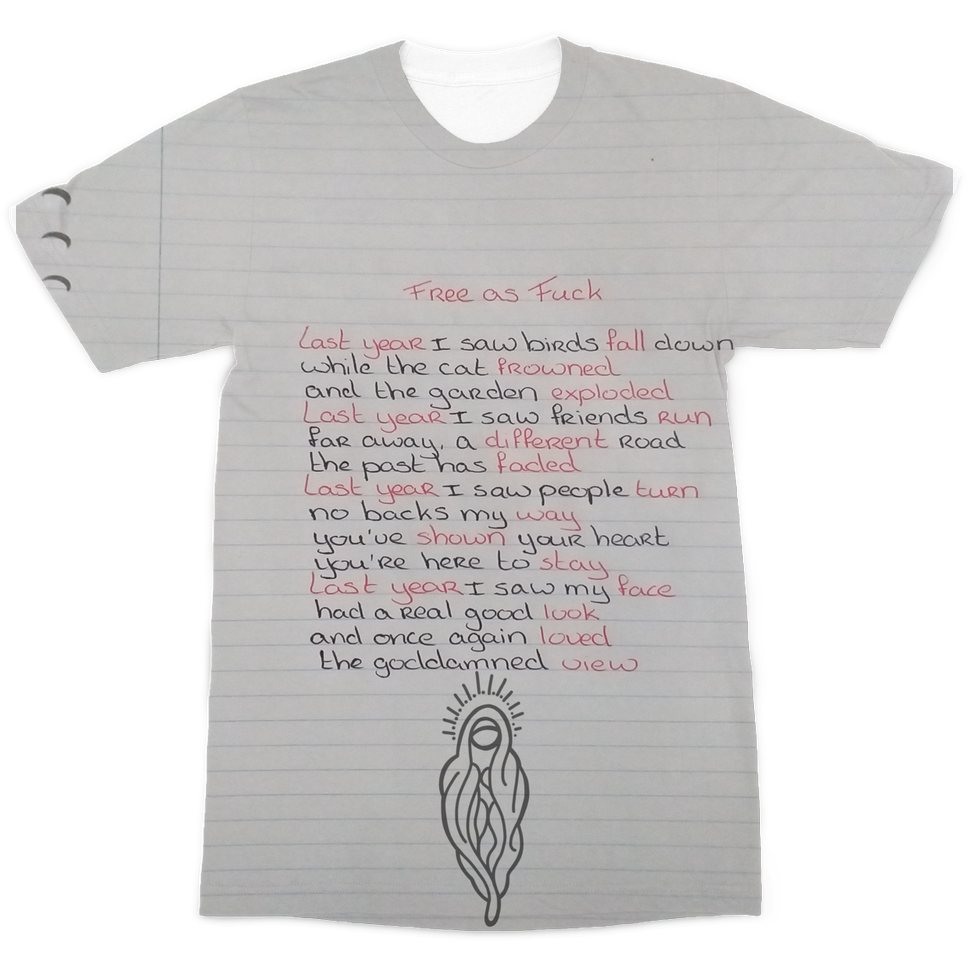 Free as Fuck
Last year I saw birds fall down
while the cat frowned
and the garden exploded
Last year I saw friends run
far away, a different road
the past has faded
Last year I saw people turn
no backs my way
you've shown your heart
you're here to stay
Last year I saw my face
had a real good look
and once again loved
the goddamned view